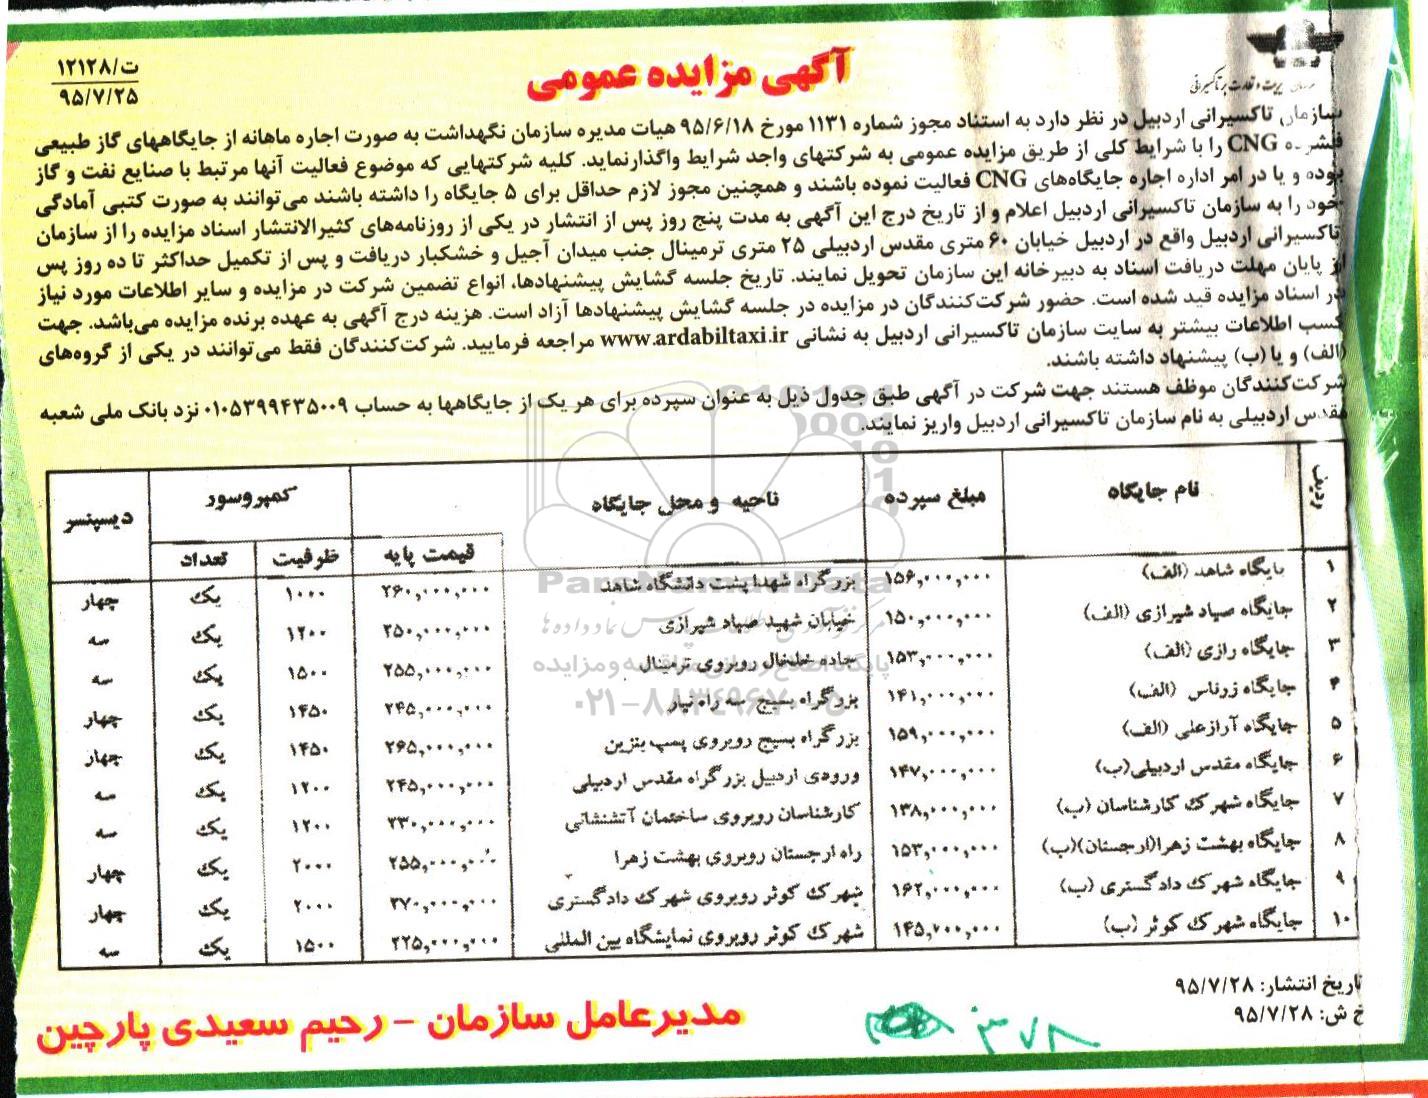 ت/۱۲۱۲۸
۹۵/۷/۲۵
آگهی مزایده عمومی
سازمان تاکسیرانی اردبیل در نظر دارد به استناد مجوز شماره ۱۱۳۱ مورخ ۹۵/۶/۱۸ هیات مدیره سازمان نگهداشت به صورت اجاره ماهانه از جایگاههای گاز طبیعی
فشرده CNG را با شرایط کلی از طریق مزایده عمومی به شرکتهای واجد شرایط واگذارنماید. کلیه شرکتهایی که موضوع فعالیت آنها مرتبط با صنایع نفت و گاز
بوده و یا در امر اداره اجاره جایگاه‌های CNG فعالیت نموده باشند و همچنین مجوز لازم حداقل برای ۵ جایگاه را داشته باشند می‌توانند به صورت کتبی آمادگی
خود را به سازمان تاکسیرانی اردبیل اعلام و از تاریخ درج این آگهی به مدت پنج روز پس از انتشار در یکی از روزنامه‌های کثیرالانتشار اسناد مزایده را از سازمان
تاکسیرانی اردبیل واقع در اردبیل خیابان ۶۰ متری مقدس اردبیلی ۲۵ متری ترمینال جنب میدان آجیل و خشکبار دریافت و پس از تکمیل حداکثر تا ده روز پس
از پایان مهلت دریافت اسناد به دبیرخانه این سازمان تحویل نمایند. تاریخ جلسه گشایش پیشنهادها، انواع تضمین شرکت در مزایده و سایر اطلاعات مورد نیاز
در اسناد مزایده قید شده است. حضور شرکت‌کنندگان در مزایده در جلسه گشایش پیشنهادها آزاد است. هزینه درج آگهی به عهده برنده مزایده می‌باشد. جهت
کسب اطلاعات بیشتر به سایت سازمان تاکسیرانی اردبیل به نشانی www.ardabiltaxi.ir مراجعه فرمایید. شرکت‌کنندگان فقط می‌توانند در یکی از گروه‌های
(الف) و یا (ب) پیشنهاد داشته باشند.
شرکت‌کنندگان موظف هستند جهت شرکت در آگهی طبق جدول ذیل به عنوان سپرده برای هر یک از جایگاهها به حساب ۰۱۰۵۳۹۹۴۳۵۰۰۹ نزد بانک ملی شعبه
مقدس اردبیلی به نام سازمان تاکسیرانی اردبیل واریز نمایند.
ردیف نام جایگاه مبلغ سپرده ناحیه و محل جایگاه کمپروسور دیسپنسر
قیمت پایه ظرفیت تعداد
۱ جایگاه شاهد (الف) ۱۵۶,۰۰۰,۰۰۰ بزرگراه شهدا پشت دانشگاه شاهد ۲۶۰,۰۰۰,۰۰۰ ۱۰۰۰ یک چهار
۲ جایگاه صیاد شیرازی (الف) ۱۵۰,۰۰۰,۰۰۰ خیابان شهید صیاد شیرازی ۲۵۰,۰۰۰,۰۰۰ ۱۲۰۰ یک سه
۳ جایگاه رازی (الف) ۱۵۳,۰۰۰,۰۰۰ جاده خلخال روبروی ترمینال ۲۵۵,۰۰۰,۰۰۰ ۱۵۰۰ یک سه
۴ جایگاه زرناس (الف) ۱۴۱,۰۰۰,۰۰۰ بزرگراه بسیج سه راه نیار ۲۴۵,۰۰۰,۰۰۰ ۱۴۵۰ یک چهار
۵ جایگاه آرازعلی (الف) ۱۵۹,۰۰۰,۰۰۰ بزرگراه بسیج روبروی پمپ بنزین ۲۶۵,۰۰۰,۰۰۰ ۱۴۵۰ یک چهار
۶ جایگاه مقدس اردبیلی(ب) ۱۴۷,۰۰۰,۰۰۰ ورودی اردبیل بزرگراه مقدس اردبیلی ۲۴۵,۰۰۰,۰۰۰ ۱۲۰۰ یک سه
۷ جایگاه شهرک کارشناسان (ب) ۱۳۸,۰۰۰,۰۰۰ کارشناسان روبروی ساختمان آتشنشانی ۲۳۰,۰۰۰,۰۰۰ ۱۲۰۰ یک سه
۸ جایگاه بهشت زهرا(ارجستان)(ب) ۱۵۳,۰۰۰,۰۰۰ راه ارجستان روبروی بهشت زهرا ۲۵۵,۰۰۰,۰۰۰ ۲۰۰۰ یک چهار
۹ جایگاه شهرک دادگستری (ب) ۱۶۲,۰۰۰,۰۰۰ شهرک کوثر روبروی شهرک دادگستری ۲۷۰,۰۰۰,۰۰۰ ۲۰۰۰ یک چهار
۱۰ جایگاه شهرک کوثر (ب) ۱۴۵,۷۰۰,۰۰۰ شهرک کوثر روبروی نمایشگاه بین المللی ۲۲۵,۰۰۰,۰۰۰ ۱۵۰۰ یک سه
پایگاه اطلاع رسانی مناقصه و مزایده
۰۲۱-۸۸۳۴۹۶۷۰-۵
تاریخ انتشار: ۹۵/۷/۲۸
خ ش: ۹۵/۷/۲۸
مدیرعامل سازمان - رحیم سعیدی پارچین
۳۷۸